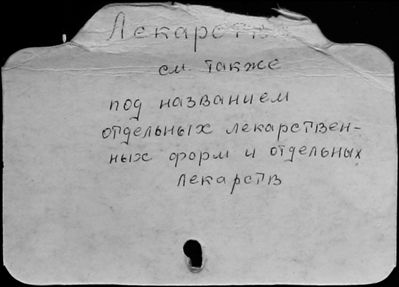 Лекарства
см. также
под названием
отдельных лекарствен-
ных форм и отдельных
лекарств